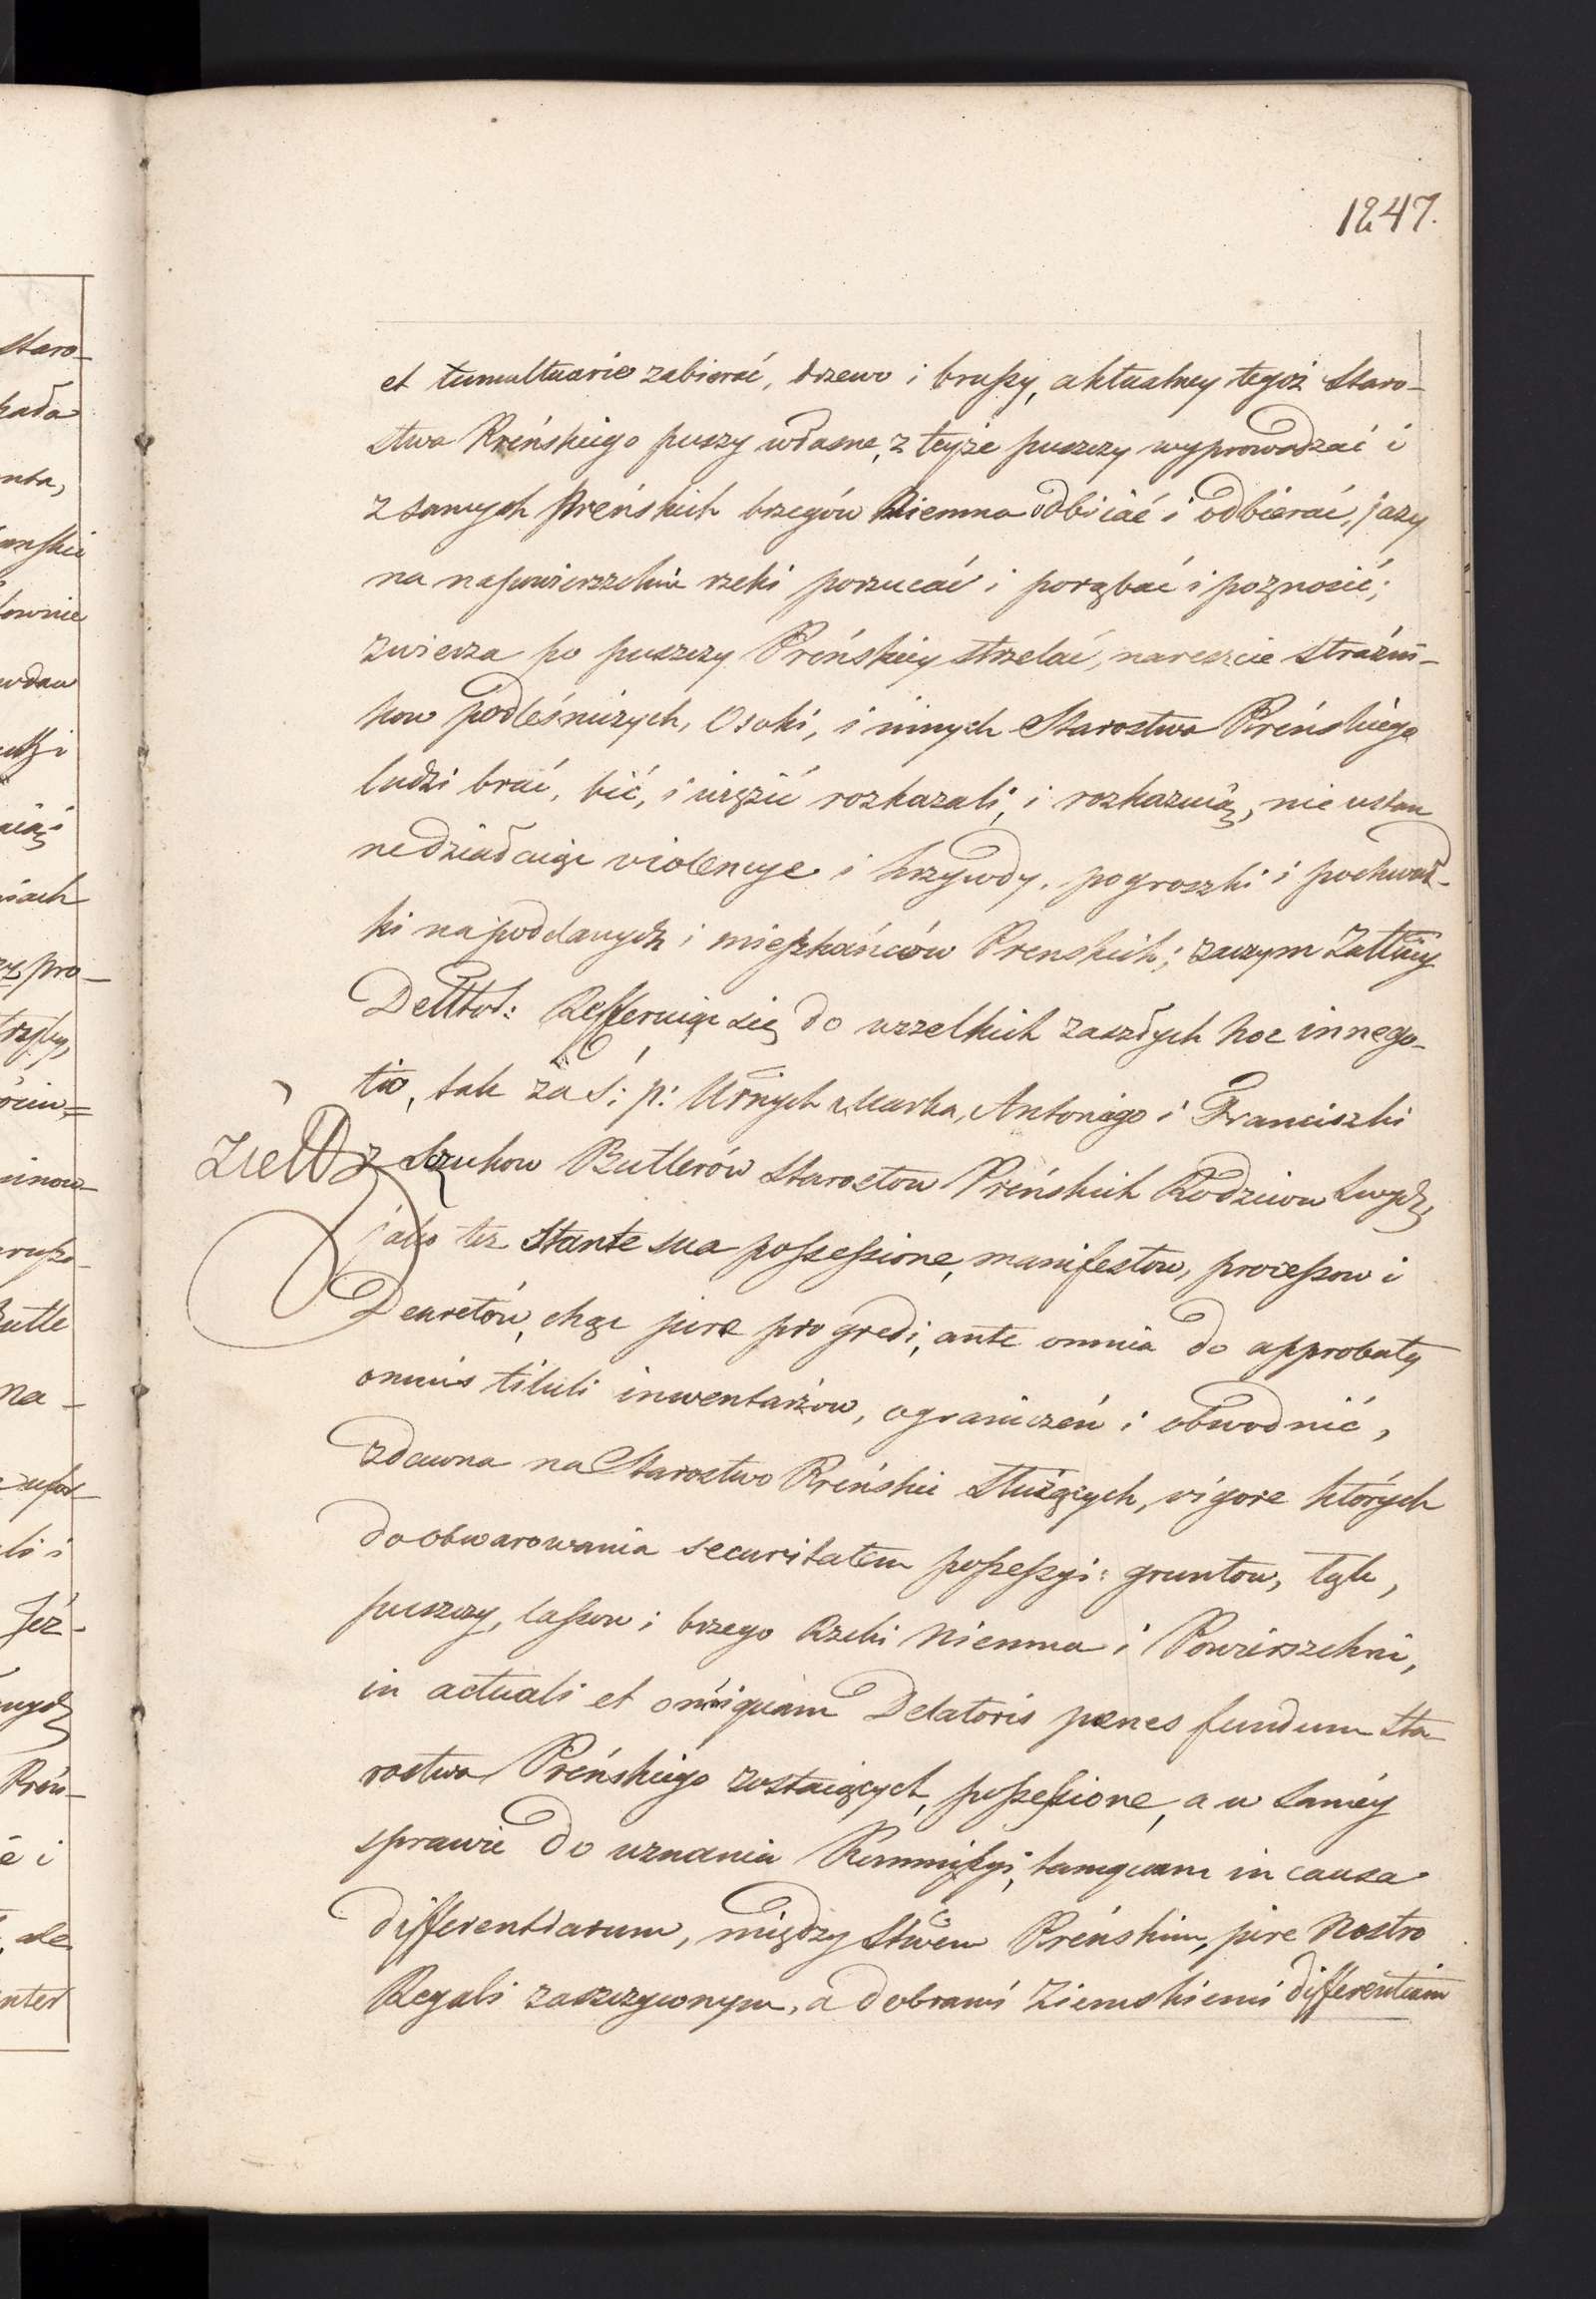 1247.
et tumultuarie zabierać, drzewo i brussy, aktualney tegoż Staro-
stwa Preńskiego puszy własne, z teyże puszczy wyprowadzać i
z samych Preńskich brzegów Niemna odbiiać i odbierać, jazy
na napowierzchnie rzeki porzucać i porąbać i poznosić;
zwierza po puszczy Preńskiey strzelać, nareszcie strażni-
kow podleśniczych, Osoki, i innych Starostwa Preńskiego
ludzi brać, bić, i więzić rozkazali, i rozkazuią, nie ustan
nie działaiąc violencye i krzywdy, pogroszki i pochwał-
ki na poddanych i mieszkańców Prenskich; zaczym
Refferuiąc się do wszelkich zaszłych hoc in nego-
tio, tak za ś: p: Urnych Marka, Antoniego i Franciszki
z Szczukow Butlerów Starostow Preńskich Rodzicow Swych,
jako też stante sua possessione, manifestow, processow i
Dekretów, chcąc jure progredi, ante omnia do approbaty
omnis tituli inwentarzow, ograniczeń i obwodnić,
zdawna na Starostwo Preńskie służących, vigore których
do obwarowania securitatem possessyi: gruntow, łąk,
puszczy, lassow i brzego Rzeki Niemna i Powierzchni,
in actuali et Delatoris penes fundum Sta
rostwa Preńskiego zostaiących, possessione, a w saméy
sprawie do uznania Kommissyi, tamquam in causa
differentiarum, między Stwem Preńskim, jure Nostro
Regali zaszczyconym, a dobrami Ziemskiemi differentiam